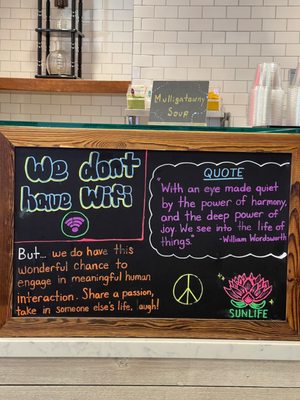 Mulligatawny
Soup
We don't
have Wifi
But... we do have this
wonderful chance to
engage in meaningful human
interaction. Share a passion,
take in someone else's life, augh!
QUOTE
"With an eye made quiet
by the power of harmony,
and the deep power of
joy, We see into the life of
things." -William Wordsworth
SUNLIFE